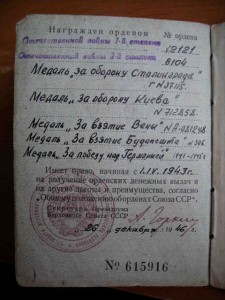 Награжден орденом № ордена
Отечественной войны 1-й степени 52121
Отечественной войны 2-й степени 8104
Медаль "За оборону Сталинграда"
Медаль "За оборону Киева"
Медаль "За взятие Вены" №А-031298
Медаль "За взятие Будапешта"
Медаль "За победу над Германией" 1941-1945
Имеет право, начиная с 1.IX.1943г.
на получение орденских денежных выдач и
на другие льготы и преимущества, согласно
"Общему положению об орденах Союза ССР".
Секретарь Президиума
Верховного Совета СССР А. Горкин
"26" декабря 1946 г.
№ 615916